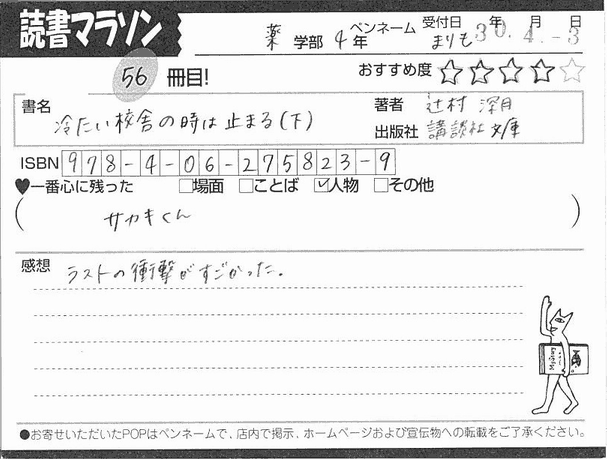 読書マラソン
薬 学部 4 年
ペンネーム まりも
受付日 30年 4月 -3日
56 冊目!
おすすめ度 ★★★★☆
書名 冷たい校舎の時は止まる(下)
著者 辻村 深月
出版社 講談社文庫
ISBN 978-4-06-275823-9
♥一番心に残った □場面 □ことば ☑人物 □その他
( サカキくん )
感想 ラストの衝撃がすごかった。
●お寄せいただいたPOPはペンネームで、店内で掲示、ホームページおよび宣伝物への転載をご了承ください。